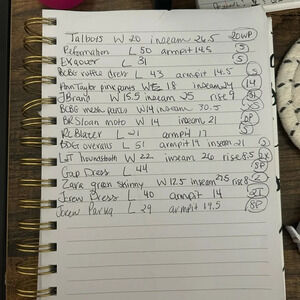 Talbots W 20 inseam 26.5 20WP
Reformation L 50 armpit 14.5 S
L 31 S
BCBG ruffle dress L 43 armpit 14.5 S
AnnTaylor pine pants W 18 inseam 14
J Brand W 15.5 inseam 25 rise 9
BCBG mesh pants W 14 inseam 30.5 XS
BR Sloan moto W 14 inseam 21 0P
RL Blazer L 21 armpit 17 8
BDG overalls L 51 armpit 19 inseam 21
LOFT houndstooth W 22 inseam 26 rise 8.5
Gap Dress L 44 8P
Zara green skinny W 12.5 inseam 27.5 rise 8 2
JCrew Dress L 40 armpit 14
JCrew Parka L 29 armpit 19.5 SP